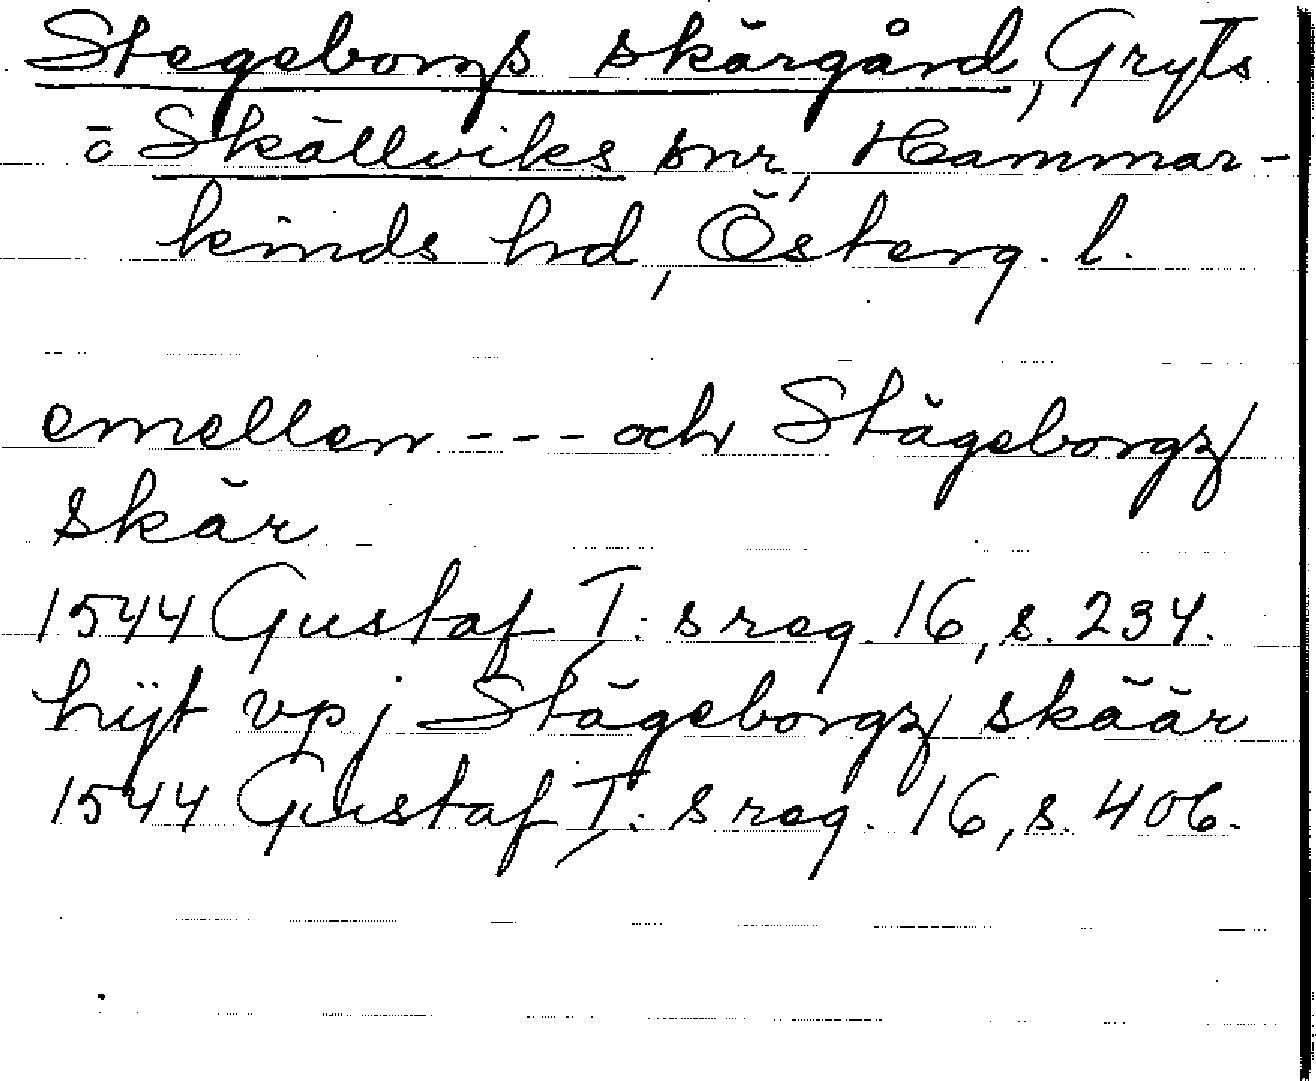 Stegeborgs skärgård, Gryts
o Skällviks snr, Hammar-
kinds hd, Österg. l.
emellen --- och Stägeborgz
skär
1544 Gustaf I:s reg. 16, s. 234.
hijt vp j Stägeborgz skäär
1544 Gustaf I:s reg. 16, s. 406.